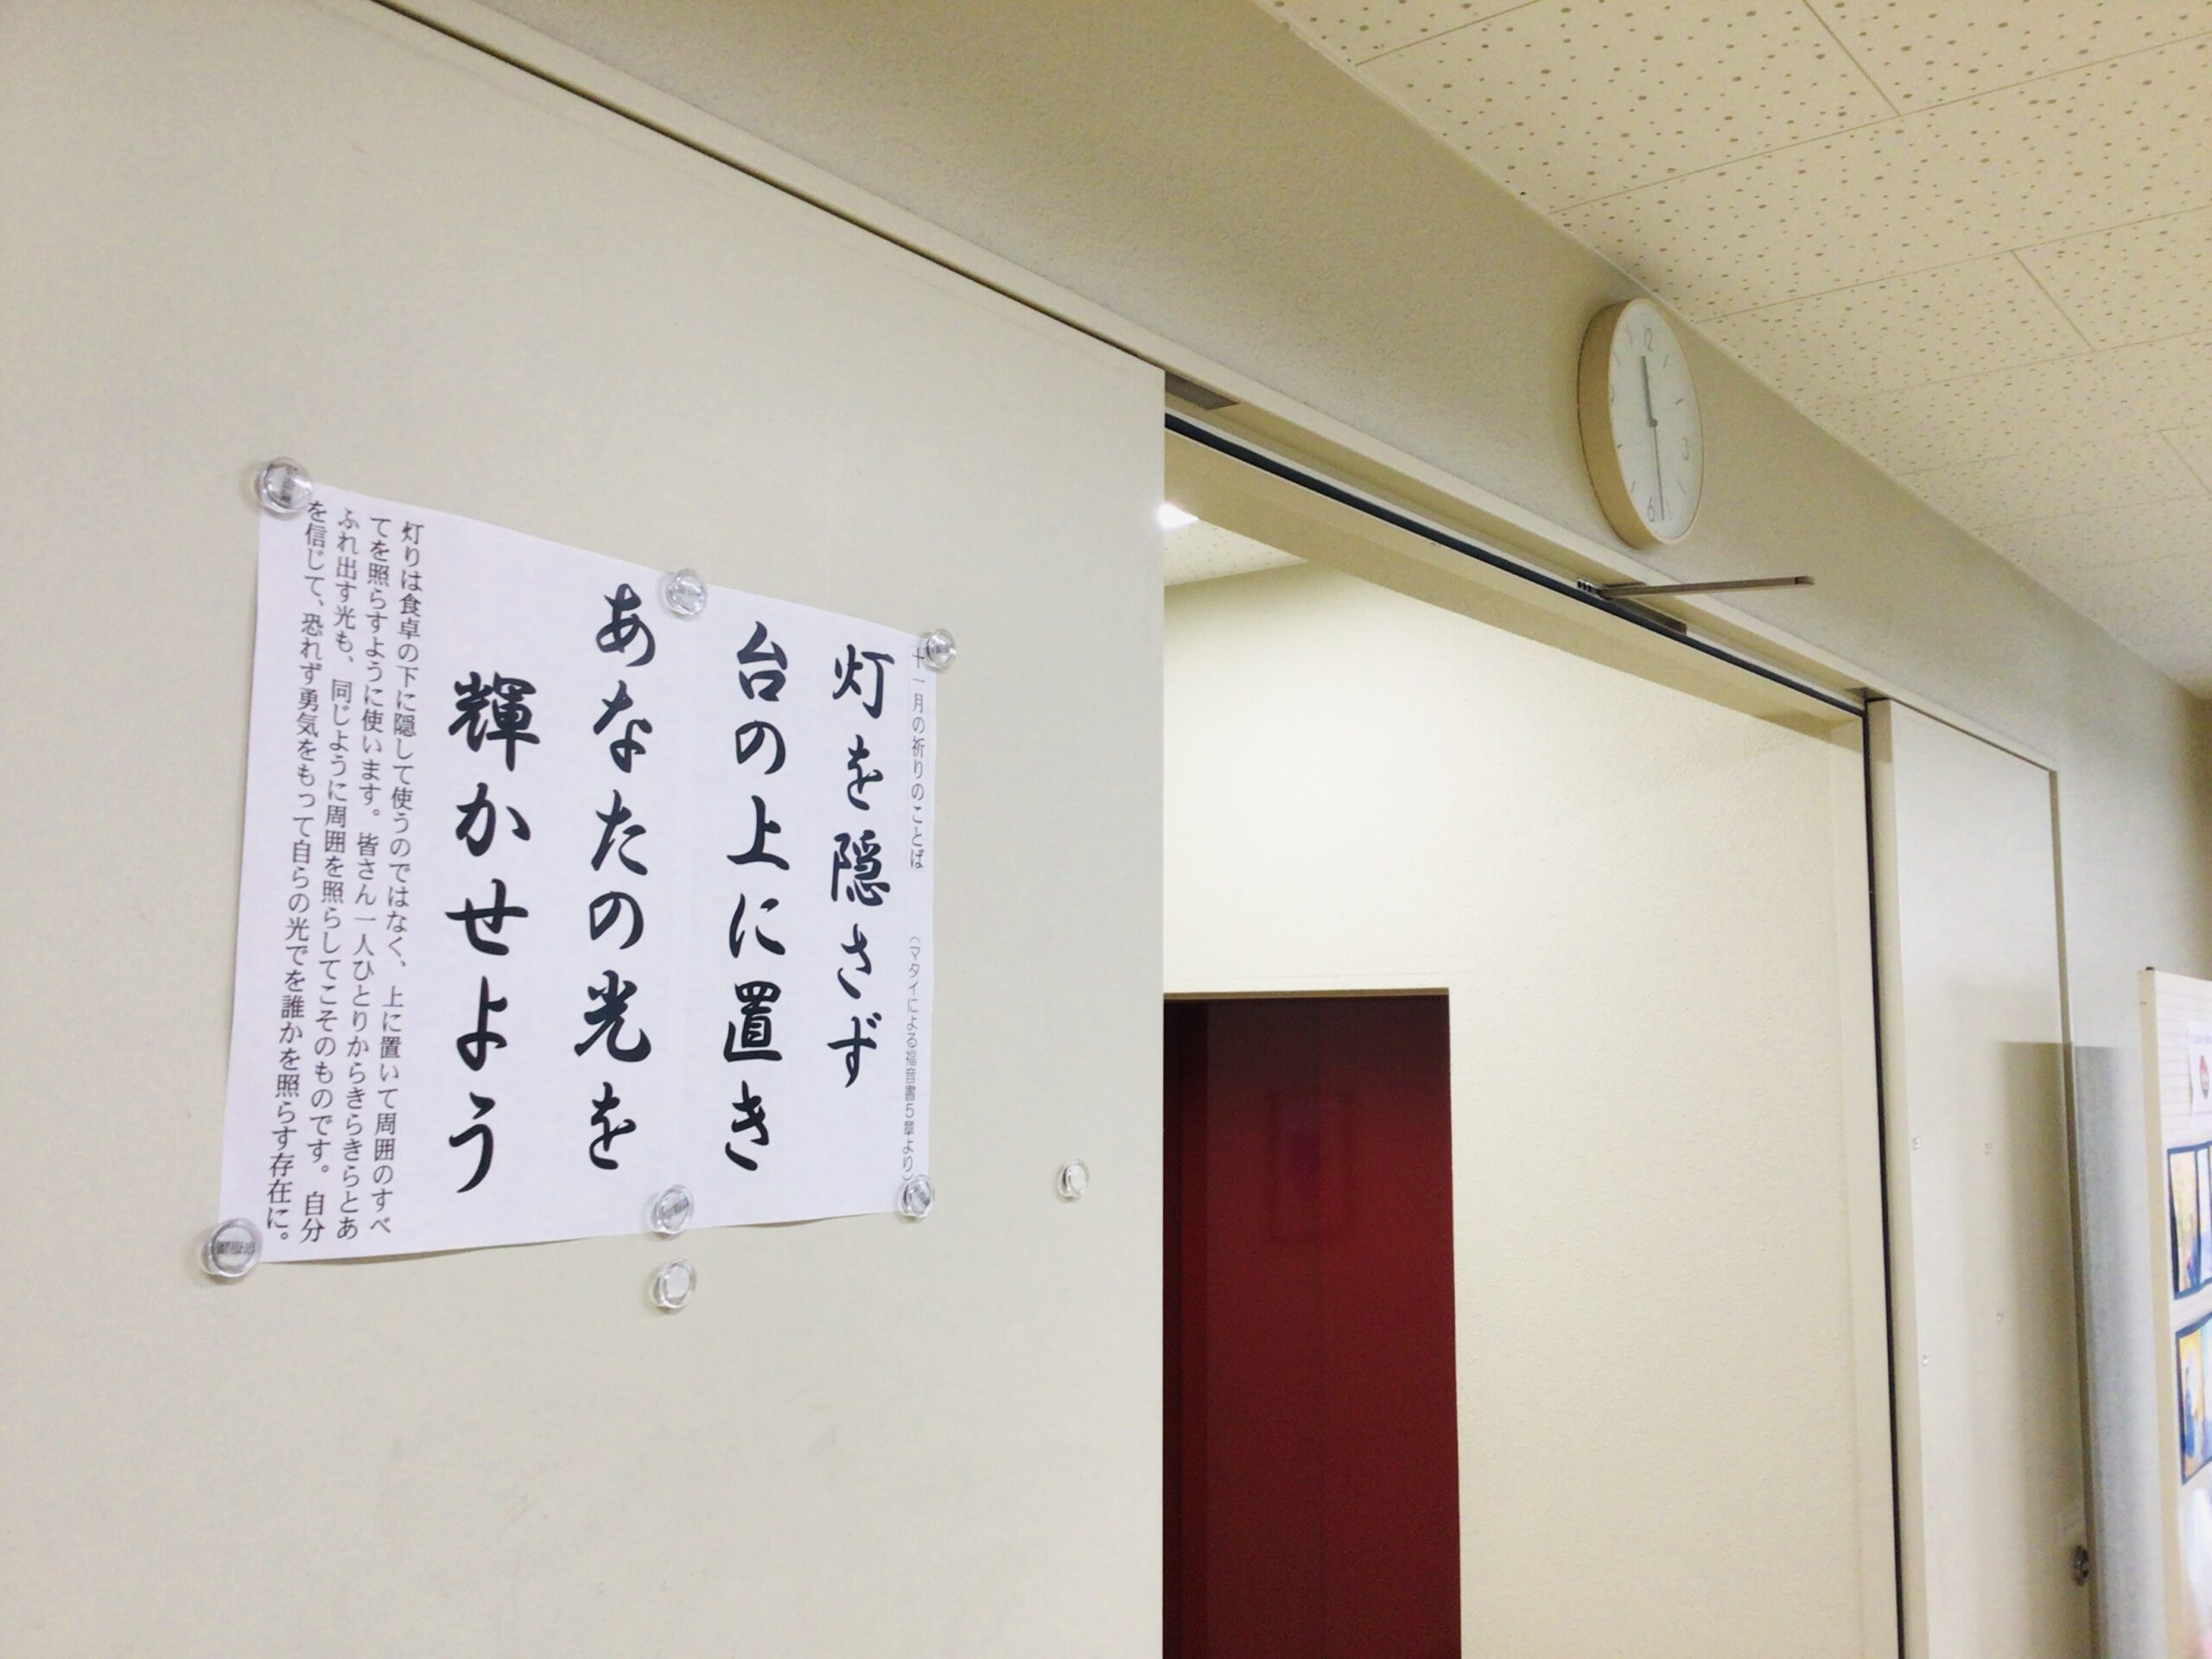 十一月の祈りのことば　（マタイによる福音書5章より）
灯を隠さず
台の上に置き
あなたの光を
輝かせよう
灯りは食卓の下に隠して使うのではなく、上に置いて周囲のすべ
てを照らすように使います。皆さん一人ひとりからきらきらとあ
ふれ出す光も、同じように周囲を照らしてこそのものです。自分
を信じて、恐れず勇気をもって自らの光でを誰かを照らす存在に。
12
3
6